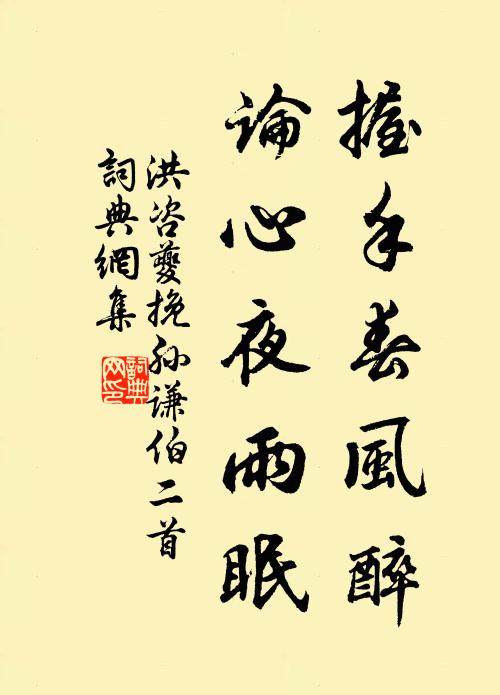 握手春風醉
論心夜雨眠
洪咨夔挽孙谦伯二首
詞典網集
詞典
网印